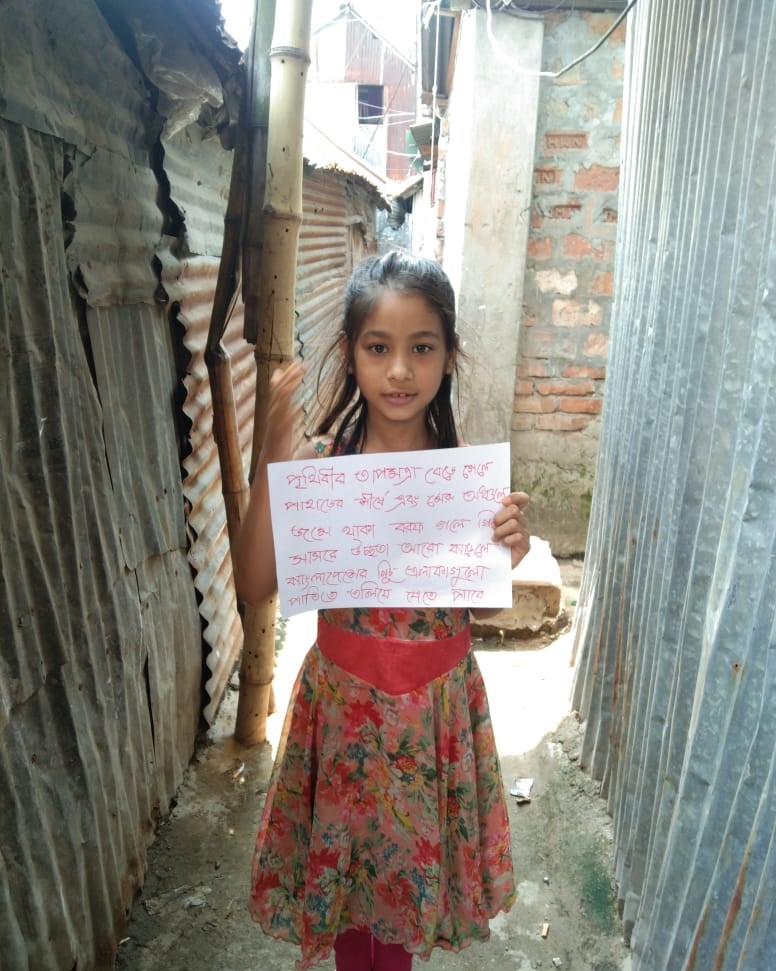 পৃথিবীর তাপমাত্রা বেড়ে গেলে
পাহাড়ের শীর্ষে এবং মেরু অঞ্চলে
জমে থাকা বরফ গলে গিয়ে
সাগরে উচ্চতা আরো বাড়লে
বাংলাদেশের নিচু এলাকাগুলো
পানিতে তলিয়ে যেতে পারে